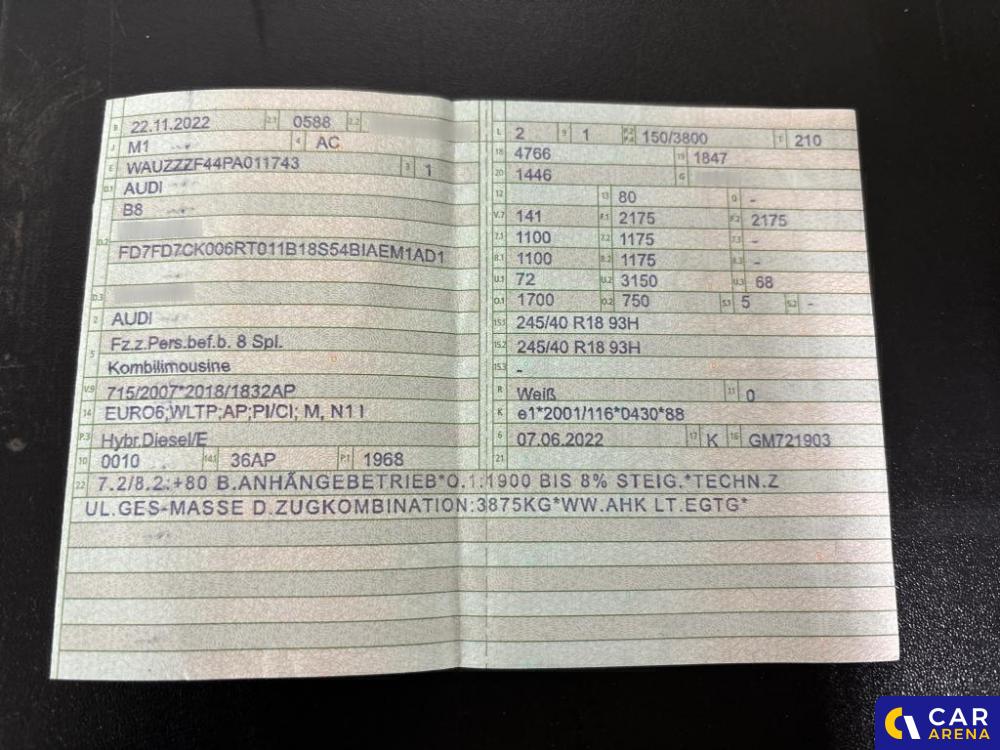 B 22.11.2022 2.1 0588 2.2
J M1 4 AC
E WAUZZZF44PA011743 3 1
D.1 AUDI
B8
D.2 FD7FD7CK006RT011B18S54BIAEM1AD1
D.3
2 AUDI
5 Fz.z.Pers.bef.b. 8 Spl.
Kombilimousine
V.9 715/2007*2018/1832AP
14 EURO6;WLTP;AP;PI/CI; M, N1 I
P.3 Hybr.Diesel/E
10 0010 14.1 36AP P.1 1968
L 2 9 1 P.2 P.4 150/3800 T 210
18 4766 19 1847
20 1446 G
12 13 80 Q -
V.7 141 F.1 2175 F.2 2175
7.1 1100 7.2 1175 7.3 -
8.1 1100 8.2 1175 8.3 -
U.1 72 U.2 3150 U.3 68
O.1 1700 O.2 750 S.1 5 S.2 -
15.1 245/40 R18 93H
15.2 245/40 R18 93H
15.3 -
R Weiß 11 0
K e1*2001/116*0430*88
6 07.06.2022 17 K 16 GM721903
21
22 7.2/8.2:+80 B.ANHÄNGEBETRIEB*O.1:1900 BIS 8% STEIG.*TECHN.Z
UL.GES-MASSE D.ZUGKOMBINATION:3875KG*WW.AHK LT.EGTG*
CAR
ARENA